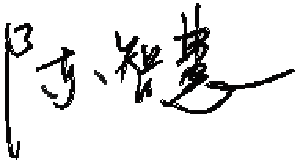 陈智慧